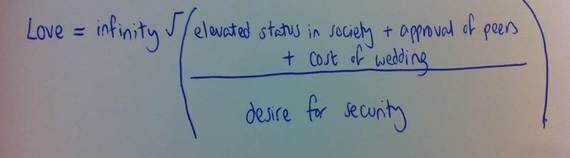 Love = infinity √(elevated status in society + approval of peers
+ cost of wedding
desire for security)